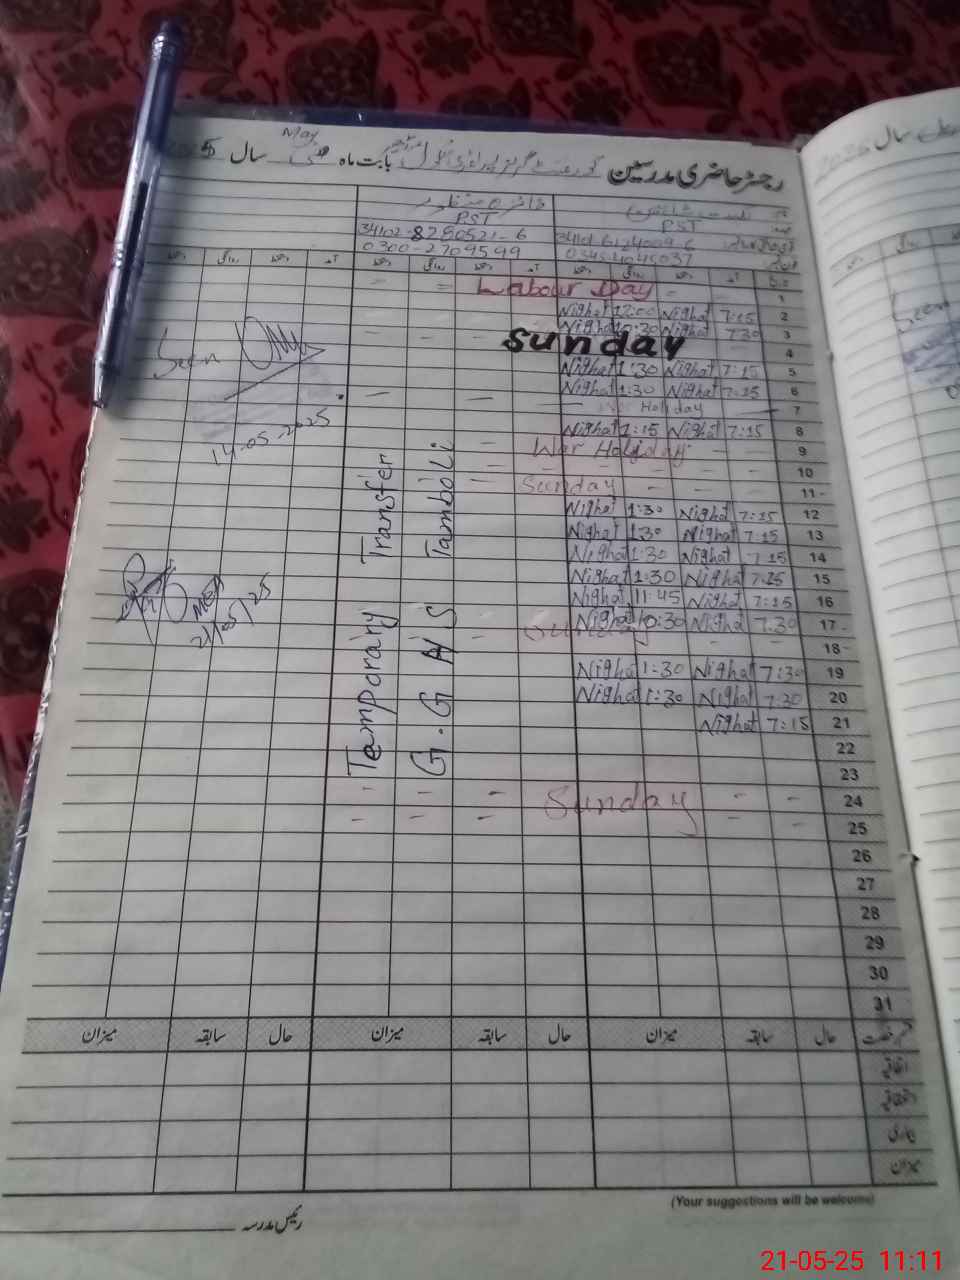 رجسٹر حاضری مدرسین گورنمنٹ گرلز پرائمری سکول بابت ماہ مئی سال 2025
May
PST
PST
34102-8250521-6
0300-2709599
1 Labour Day
2 7:15 Nighat 12:00 Nighat
3 7:30 Nighat 10:30 Nighat
4 Sunday
5 7:15 Nighat 1:30 Nighat
6 7:15 Nighat 1:30 Nighat
7 Holiday
8 7:15 Nighat 1:15 Nighat
9 War Holiday
10
11 Sunday
12 7:15 Nighat 1:30 Nighat
13 7:15 Nighat 1:30 Nighat
14 7:15 Nighat 1:30 Nighat
15 7:15 Nighat 1:30 Nighat
16 7:15 Nighat 11:45 Nighat
17 7:30 Nighat 10:30 Nighat
18 Sunday
19 7:30 Nighat 1:30 Nighat
20 7:30 Nighat 1:30 Nighat
21 7:15 Nighat
22
23
24 Sunday
25
26
27
28
29
30
31
Temporary Transfer
G.G.H/S Tamboli
Seen
14-05-2025
MEA
21/05/25
حال سابقہ میزان حال سابقہ میزان حال سابقہ میزان
اتفاقیہ
میزان
رئیس مدرسہ
(Your suggestions will be welcome)
21-05-25 11:11